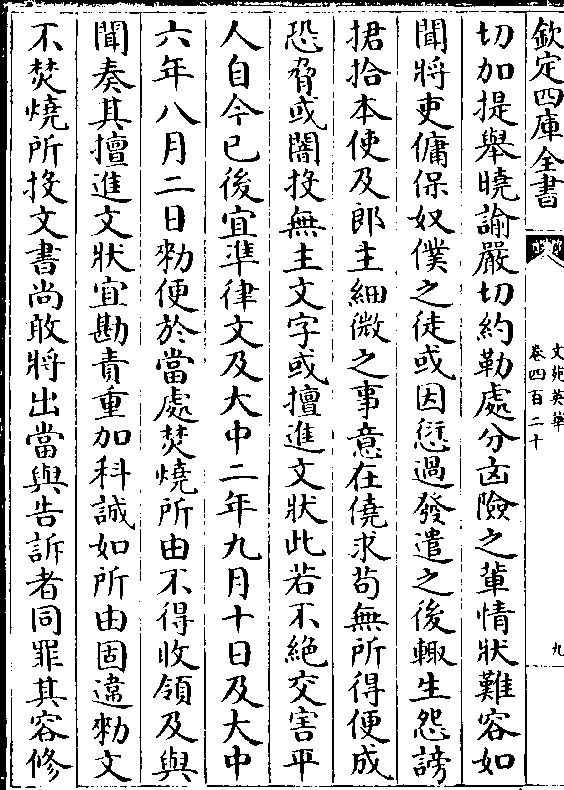 欽定四庫全書
文苑英華
卷四百二十
九
切加提舉曉諭嚴切約勒處分凶險之輩情狀難容如
聞將吏傭保奴僕之徒或因愆過發遣之後輙生怨謗
捃拾本使及郎主細微之事意在僥求茍無所得便成
恐脅或闇投無主文字或擅進文狀此若不絶交害平
人自今已後宜準律文及大中二年九月十日及大中
六年八月二日勑便於當處焚燒所由不得收領及與
聞奏其擅進文狀宜勘責重加科誡如所由固違勑文
不焚燒所投文書尚敢將出當與告訴者同罪其容修